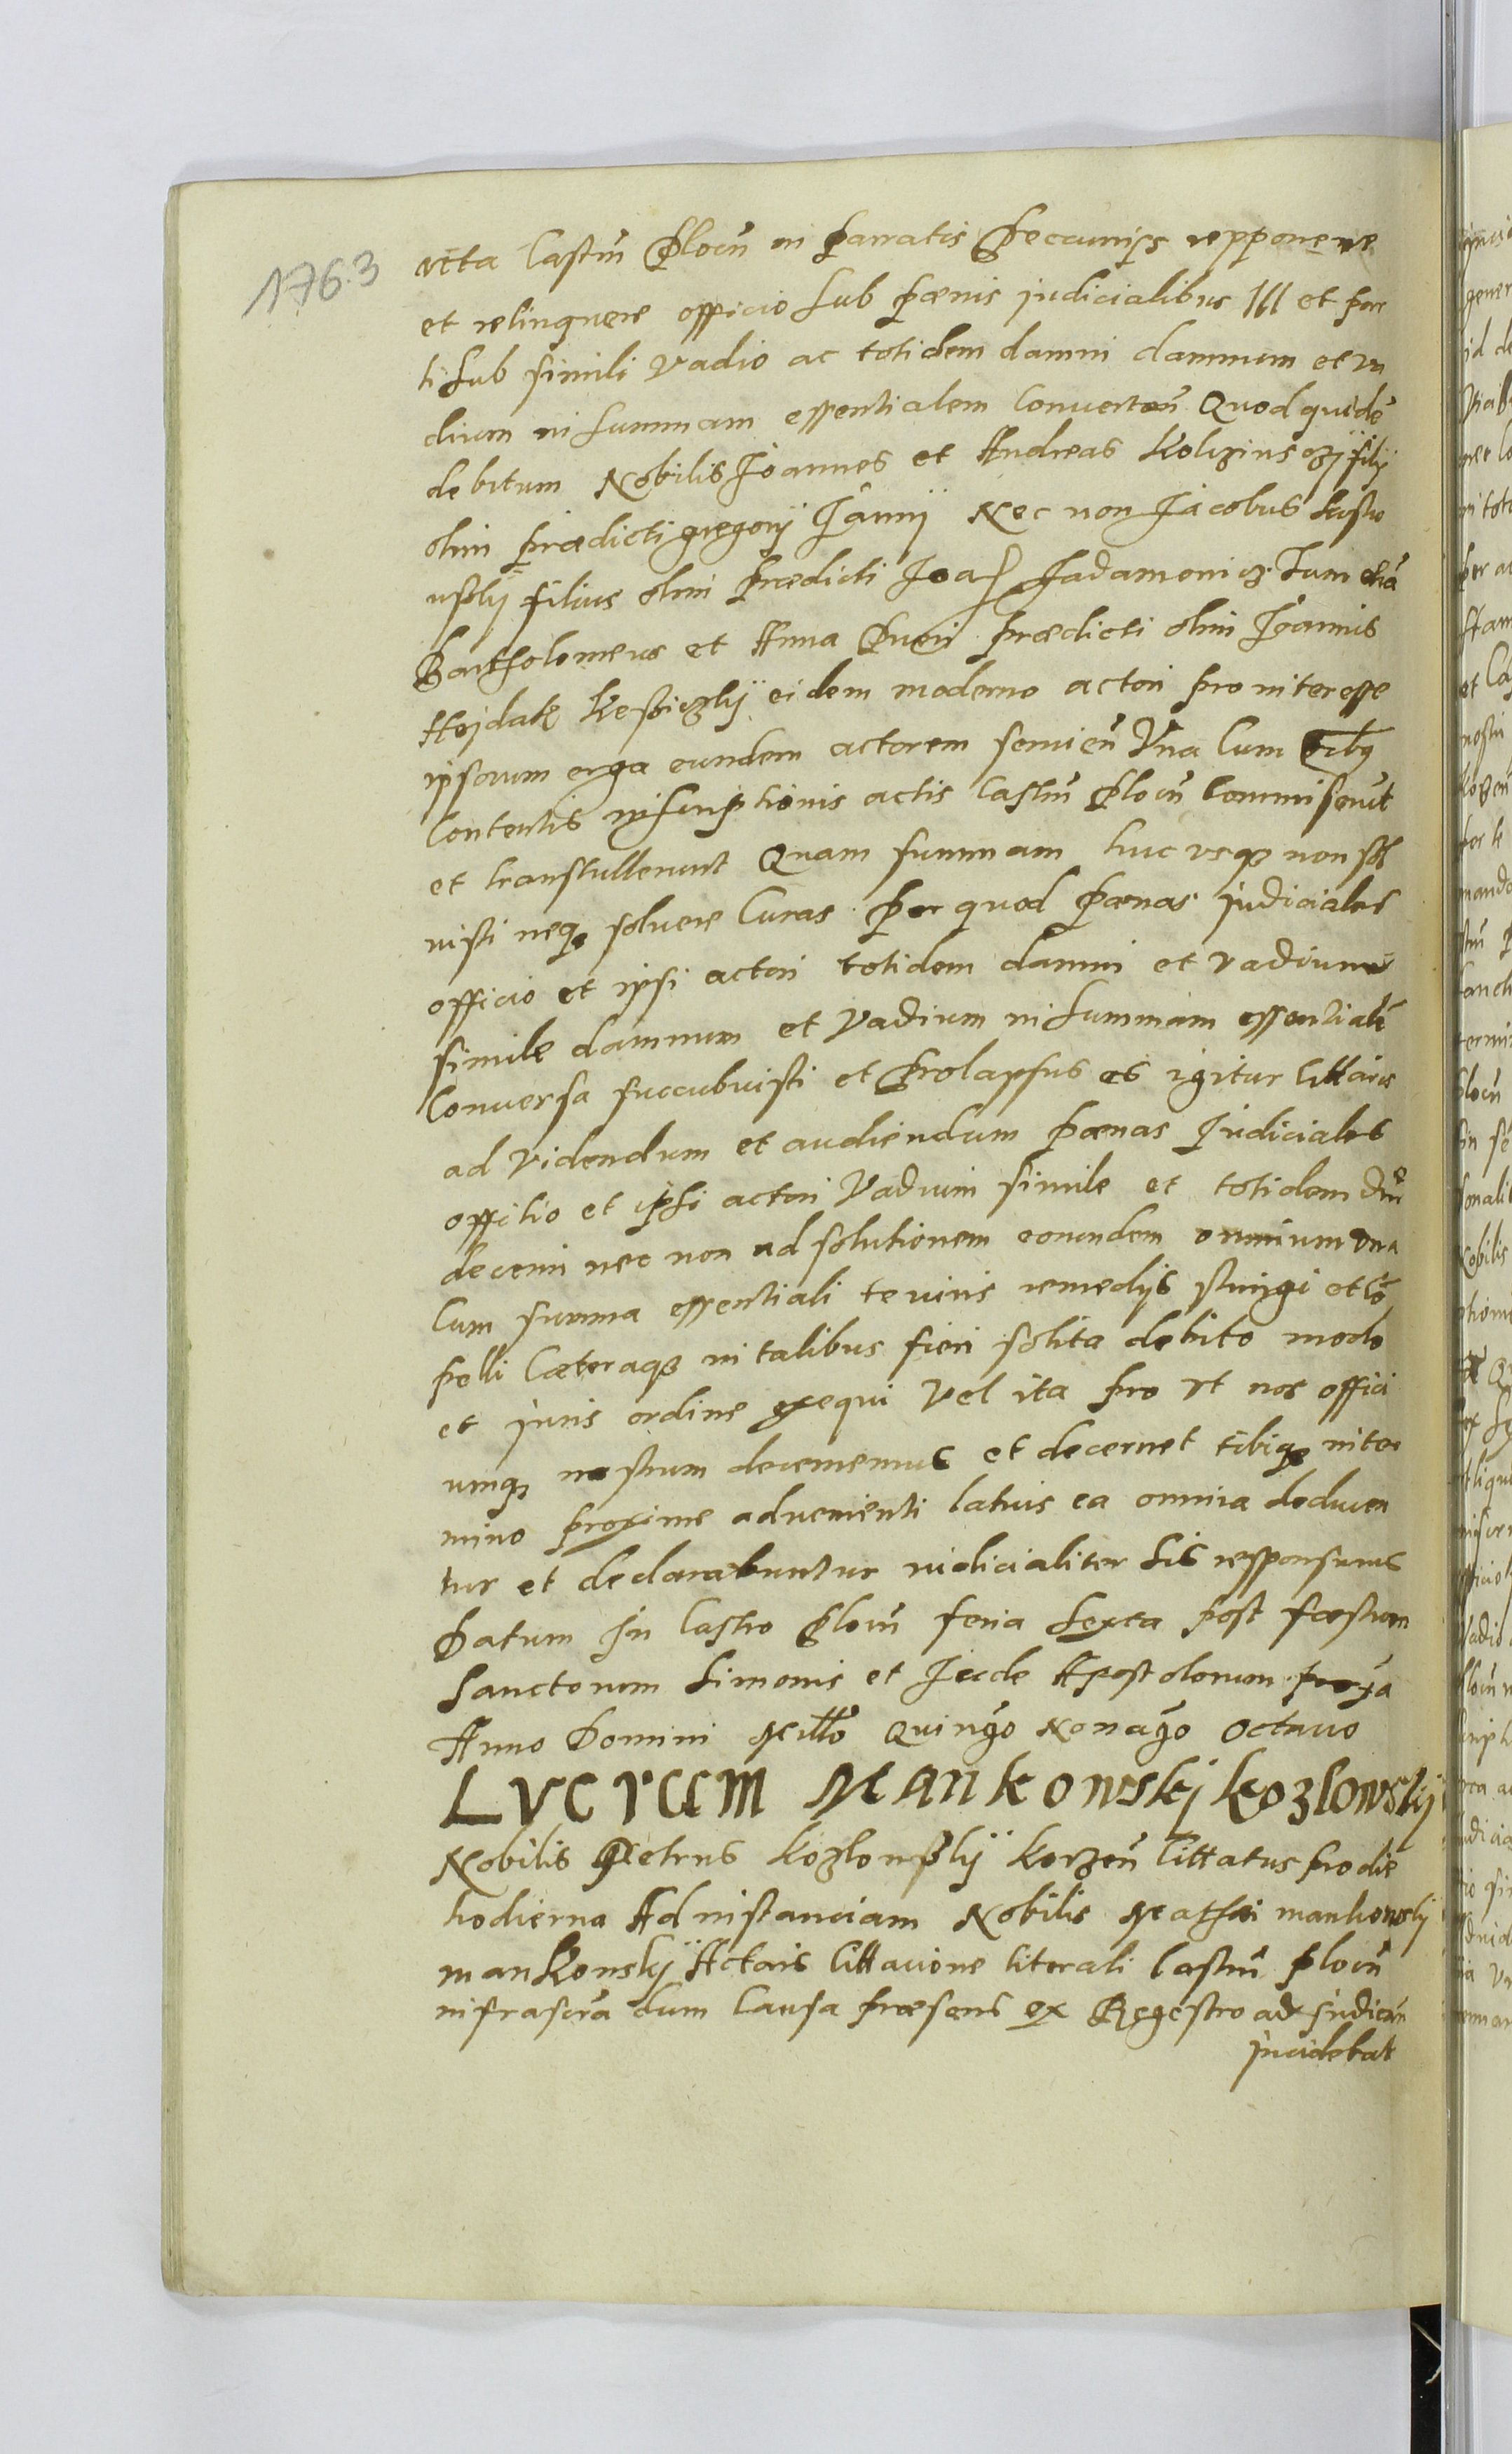 1763
acta Castrn Plocn in parratis Pecuniis repponere
et relinquere officio sub pœnis judicialibus 
ti sub simili Vadio ac totidem damni damnum et va
dium in summam essentialem Conuerten Quod quidē
debitum Nobilis Joannes et Andreas filij
olim prædicti gregorij Nec non Jacobus
filius olim prædicti Tum etiā
Bartholomeus et Anna prædicti olim Joannis
eidem moderno actori pro interesse
ipsorum erga eundem actorem Vna Cum
Contentis inscriptionis actis Castrn Plocn Commiserūt
et transtullerunt Quam summam huc vsqz non sol
uisti neqz soluere Curas per quod pœnas judiciales
officio et ipsi actori totidem damni et vadium
simile damnum et Vadium in summam essentialē
Conuersa succubuisti et Prolapsus es igitur Cittaris
ad Videndum et audiendum pœnas Judiciales
offitio et ipsi actori Vadium simile et totidem
decerni nec non ad solutionem eorundem omnium vna
Cum summa essentiali te viris remedijs stringi et cō
pelli Cæteraqz in talibus fieri solita debito modo
et juris ordine exequi Vel ita pro vt nos offici
umqz nostrum decernemus et decernet tibiqz in ter
mino proxime aduenienti latius ea omnia deducen
tur et declarabuntur iudicialiter sis responsurus
Datum in Castro Plocn feria sexta post fæstum
Sanctorum Simonis et Jude Apostolorum proxā
Anno Domini Millō Quingō Nonagō Octauo
LVCRUM Mankowskj Kozlowskij
Nobilis Petrus Kozlowskÿ Korzen Cittatus pro die
hodierna Ad instanciam Nobilis Mathæi mankowskÿ
mankowskÿ Actoris Cittacione literali Castrn plocn
infrascrā dum Causa præsens ex Regestro ad Judicān
jncidebat